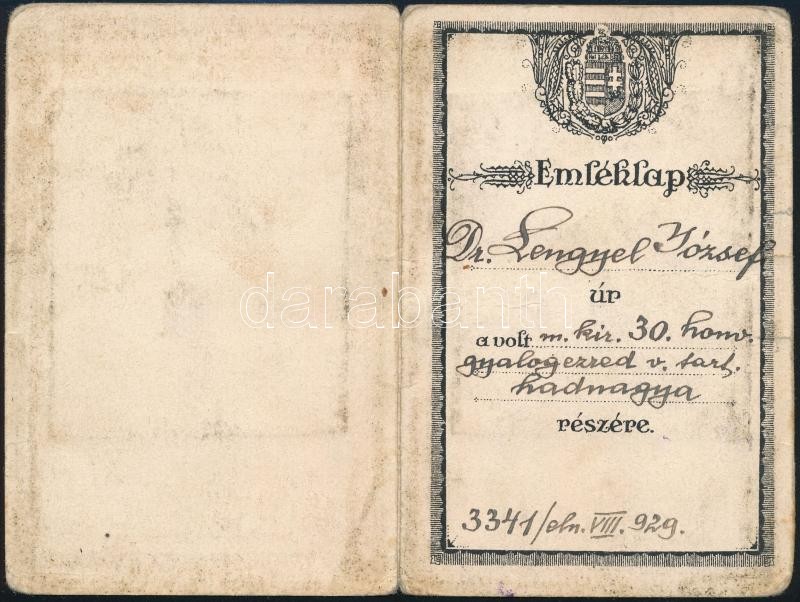 Emléklap
Dr. Lengyel József
úr
a volt m. kir. 30. honv.
gyalogezred v. tart.
hadnagya
részére.
3341/eln. VIII. 929.
darabanth